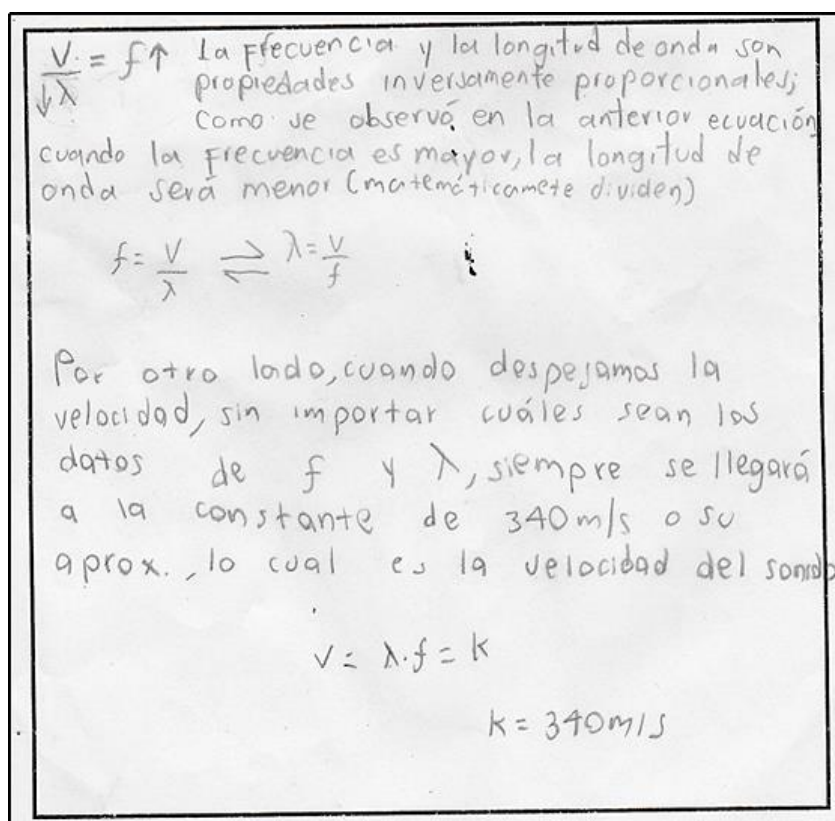 V/↓λ = f↑ La frecuencia y la longitud de onda son
propiedades inversamente proporcionales;
como se observó en la anterior ecuación
cuando la frecuencia es mayor, la longitud de
onda será menor (matemáticamete dividen)
f = V/λ ⇌ λ = V/f
Por otro lado, cuando despejamos la
velocidad, sin importar cuáles sean los
datos de f y λ, siempre se llegará
a la constante de 340 m/s o su
aprox., lo cual es la velocidad del sonido
V = λ.f = k
k = 340 m/s